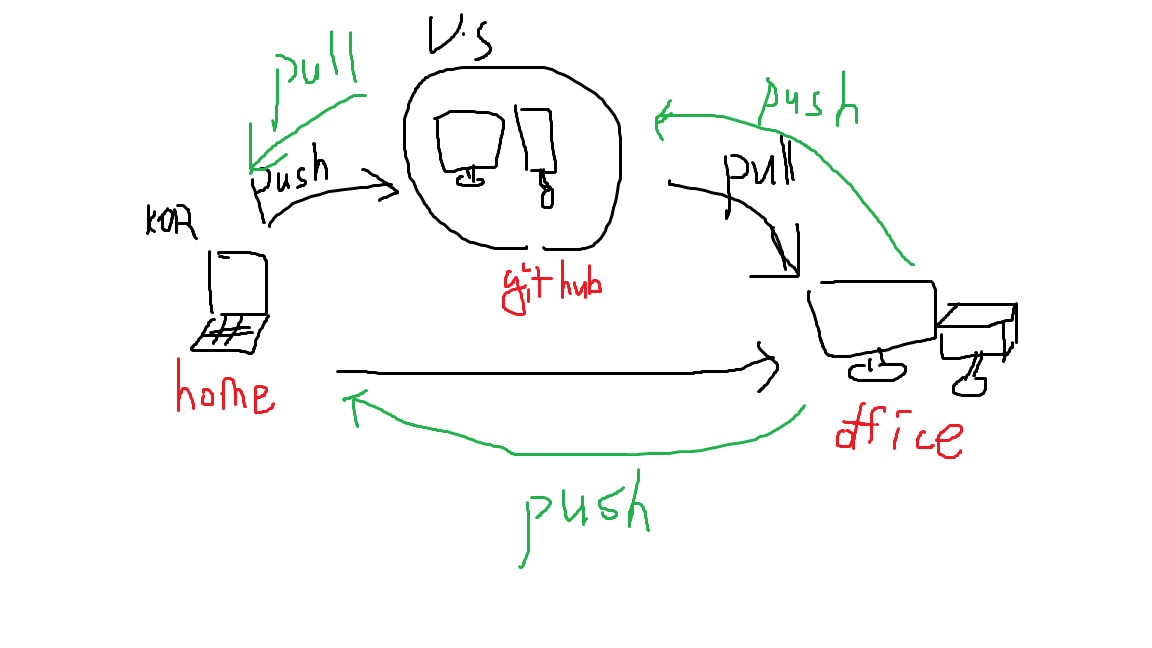 U.S
pull
push
push
pull
KOR
github
home
office
push